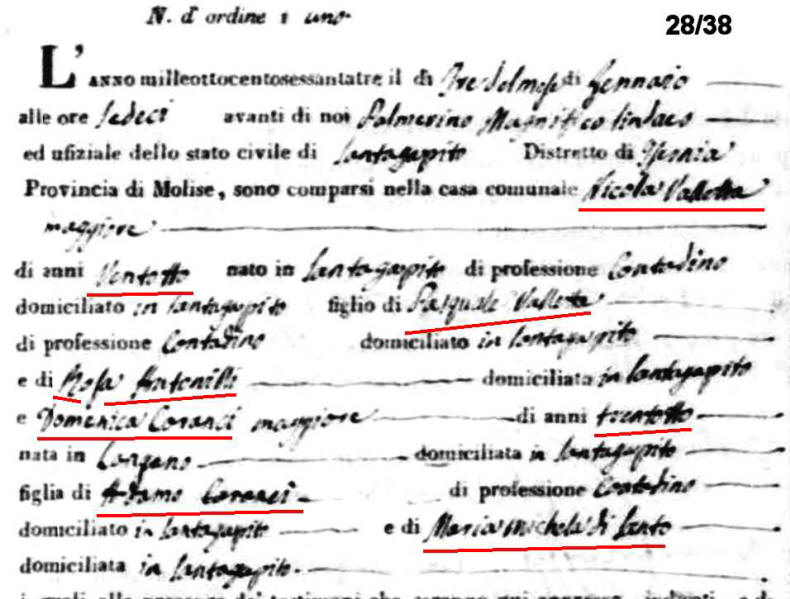 N. d'ordine 1 uno
28/38
L'ANNO milleottocentosessantatre il dì Tre del mese di Gennaio
alle ore sedeci avanti di noi Palmerino Magnifico Sindaco
ed ufiziale dello stato civile di Santagapito Distretto di Isernia
Provincia di Molise, sono comparsi nella casa comunale Nicola Valletta
maggiore
di anni Ventotto nato in Santagapito di professione Contadino
domiciliato in Santagapito figlio di Pasquale Valletta
di professione Contadino domiciliato in Santagapito
e di Rosa domiciliata in Santagapito
e Domenica Coranci maggiore di anni trentotto
nata in Longano domiciliata in Santagapito
figlia di Adamo Coranci di professione Contadino
domiciliato in Santagapito e di Maria Michela di Santo
domiciliata in Santagapito.